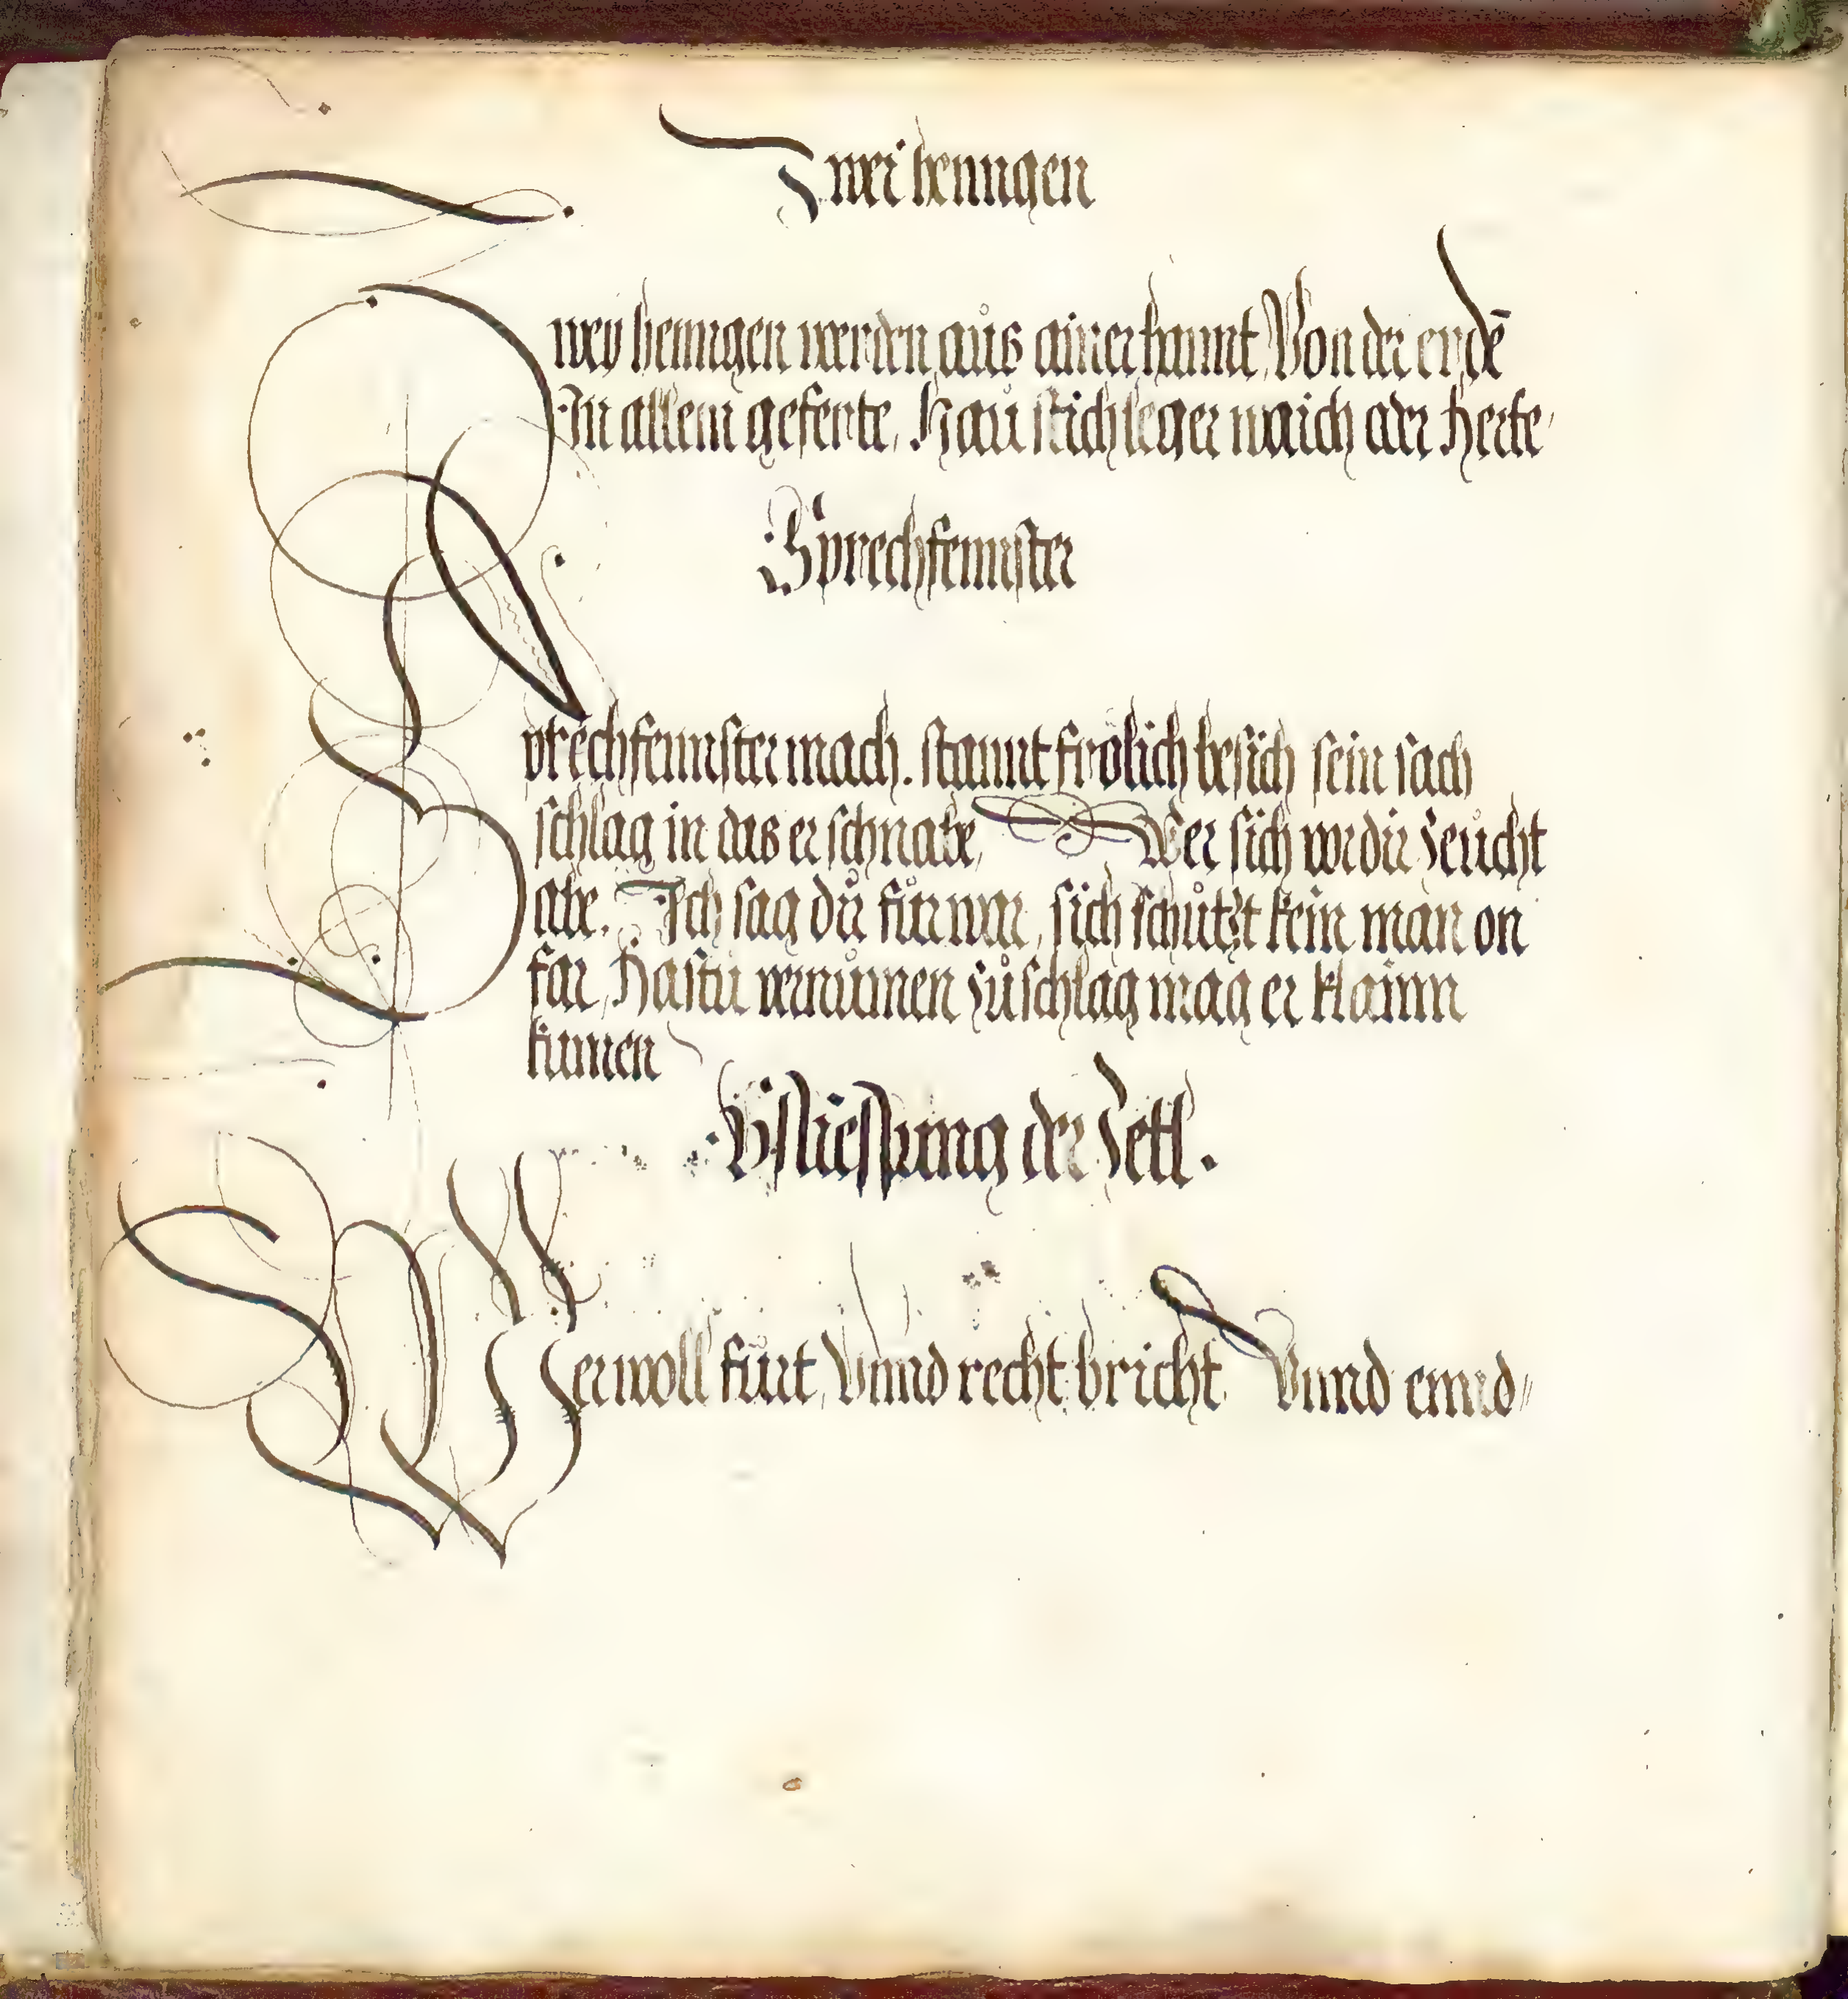 Zwei henngen
Zwey henngen werden aůs ainer hannt, Von der erndē
In allem geferte, Haů stich leger waich oder herte
Sprechfennster
Sprechfennster mach. stannt frölich besich sein sach
schlag in das er schnabe, Wer sich vor dir zeůcht
abe. Ich sag dů fůrwar, sich schůtzt kein man on
far, Hastu vernůmen zůschlag mag er klainn
kumen
Bsliessung der Zettl.
Wer woll fůrt, Vnnd recht bricht Vnnd ennd